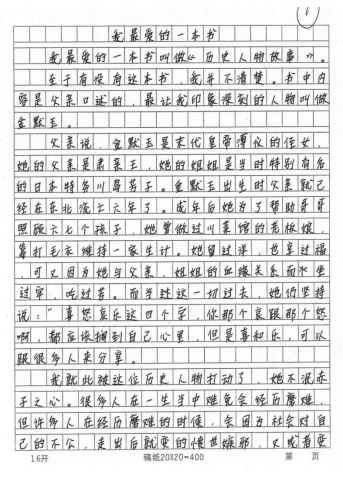 1
我最爱的一本书
我最爱的一本书叫做《历史人物故事》。
至于有没有这本书，我并不清楚。书中内
容是父亲口述的，最让我印象深刻的人物叫做
金默玉。
父亲说，金默玉是末代皇帝溥仪的侄女，
她的父亲是肃亲王，她的姐姐是当时特别有名
的日本特务川岛芳子。金默玉出生时父亲就已
经在东北流亡六年了。成年后她为了帮助哥哥
照顾六七个孩子，她曾做过川菜馆的老板娘，
靠打毛衣维持一家生计。她留过洋，也享过福
，可又因为她与父亲、姐姐的血缘关系而不坐
过牢，吃过苦。而当这一切过去，她仍坚持
说：“喜怒哀乐这四个字，你那个哀跟那个怒
啊，都应该搁到自己心里，但是喜和乐，可以
跟很多人来分享。
我就此被这位历史人物打动了，她不泯赤
子之心。很多人在一生当中难免会经历磨难，
但许多人在经历磨难的时候，会因为社会对自
己的不公，走出后就变的愤世嫉邪，又或者变
16开 稿纸20X20=400 第 页